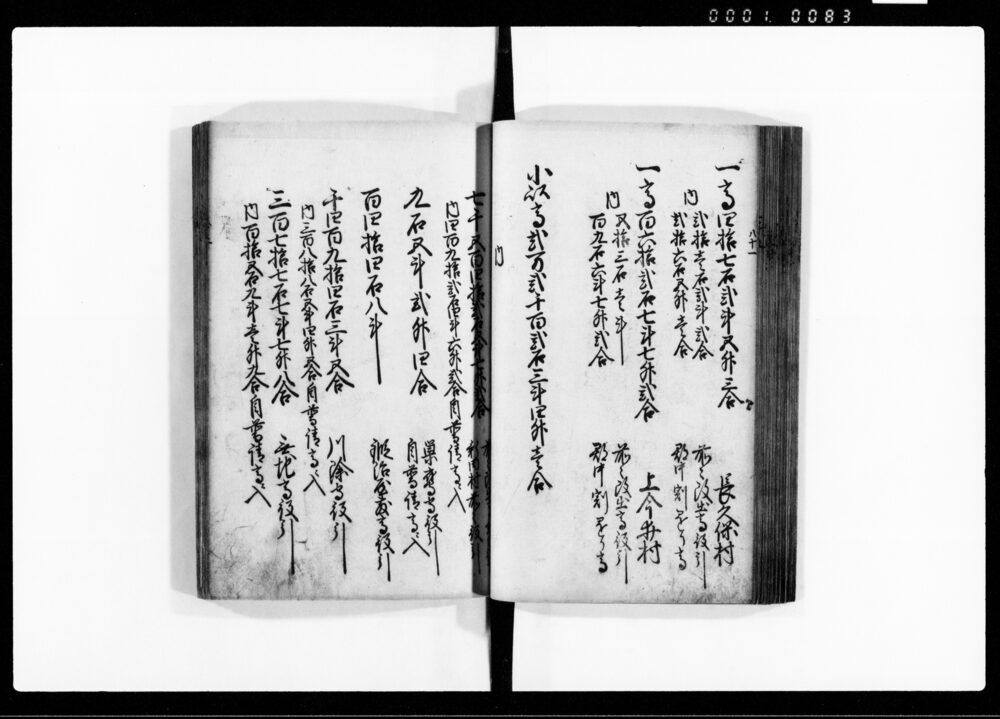 0001. 0083
八十一
一高四拾七石弐斗五升三合 長久保村
内
弐拾壱石弐斗弐合 前々改出高役引
弐拾六石五升壱合 郡中割をうる
一高百六拾弐石七斗七升弐合 上今井村
内
五拾三石壱斗 前々改出高役引
百九石六斗七升弐合 郡中割をうる
小以高弐万弐千百弐石三斗四升壱合
内
七千五百四拾弐石 役引
内四百九拾弐石 斗六升弐合自普請高ニ入
九石五斗弐升四合 巣鷹高役引
自普請高ニ入
百四拾四石八斗 鍛冶屋敷高役引
千四百九拾四石三斗五合 川除高役引
内三百八拾八石五斗四升五合自普請高ニ入
三百七拾七石七斗七升八合 無地高役引
内百拾五石九斗壱升九合自普請高ニ入